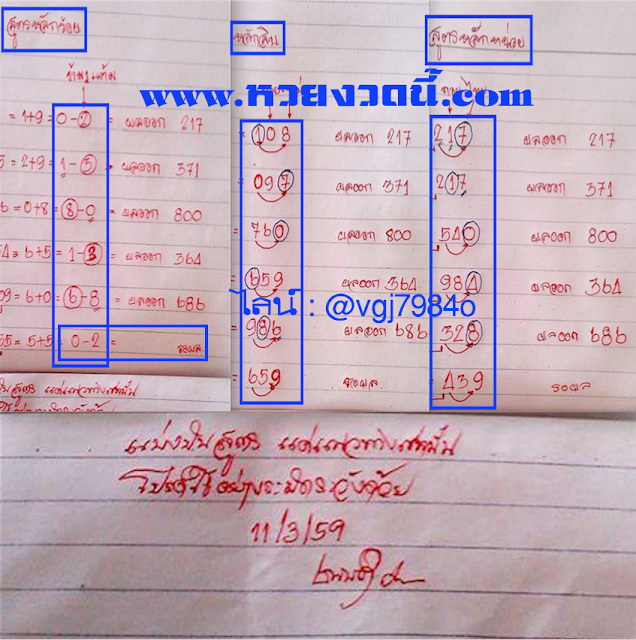 สูตรหลักร้อย
หลักสิบ
สูตรหลักหน่อย
www.หวยงวดนี้.com
= 1+9 = 0-2 = ผลออก 217
108 ผลออก 217
217 ผลออก 217
5 = 2+9 = 1-3 = ผลออก 371
097 ผลออก 371
217 ผลออก 371
= 0+8 = 8-0 = ผลออก 800
760 ผลออก 800
540 ผลออก 800
= 6+5 = 1-3 = ผลออก 364
659 ผลออก 364
984 ผลออก 364
ไลน์ : @vgj7984o
09 = 6+0 = 6-8 = ผลออก 686
986 ผลออก 686
328 ผลออก 686
55 = 5+5 = 0-2 = รอผล
659 รอผล
439 รอผล
แบ่งปันสูตร แค่แนวทางเท่านั้น
โปรดใช้อย่างระมัดระวังด้วย
11/3/59